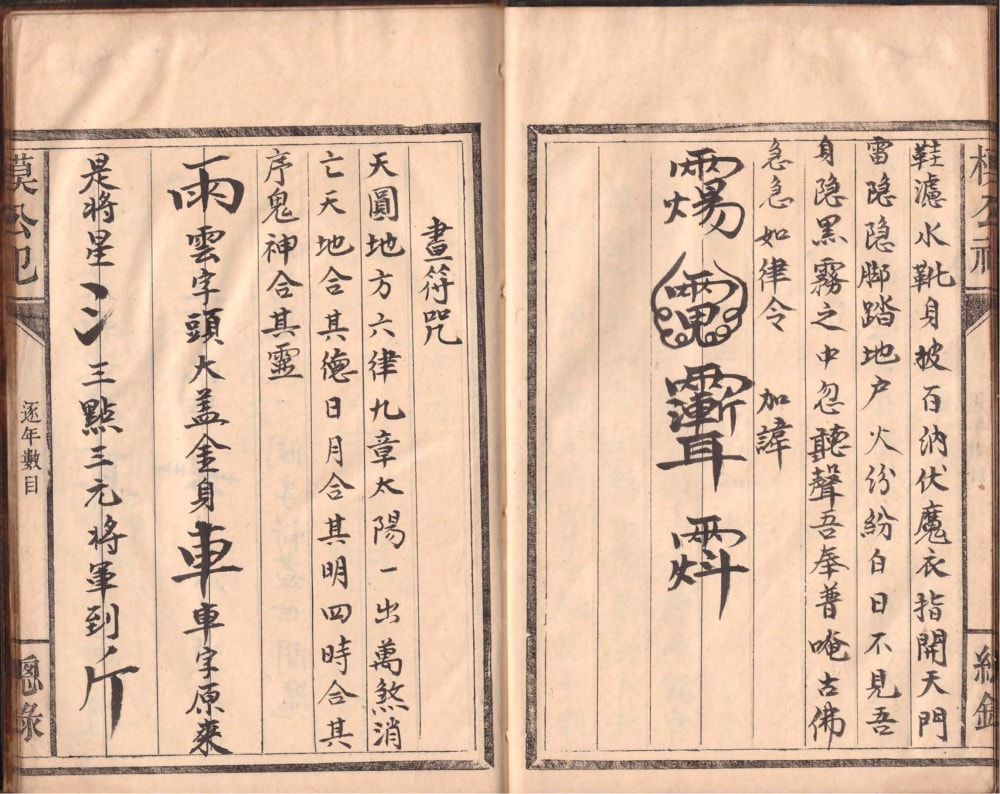 鞋濾水靴身披百衲伏魔衣指開天門
雷隐隐脚踏地户火纷紛白日不見吾
身隐黑霧之中忽聽聲吾奉普唵古佛
急急如律令 加諱
畫符咒
天圓地方六律九章太陽一出萬煞消
亡天地合其德日月合其明四時合其
序鬼神合其靈
雨雲字頭大盖金身車車字原來
是将星冫三點三元将軍到斤
逐年數目
總錄